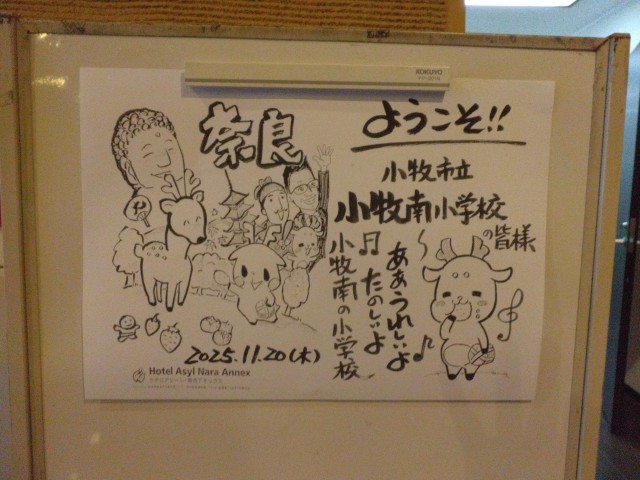 KOKUYO
奈良
ようこそ!!
小牧市立
小牧南小学校
の皆様
ああうれしいよ
たのしいよ
小牧南の小学校
2025.11.20(木)
Hotel Asyl Nara Annex